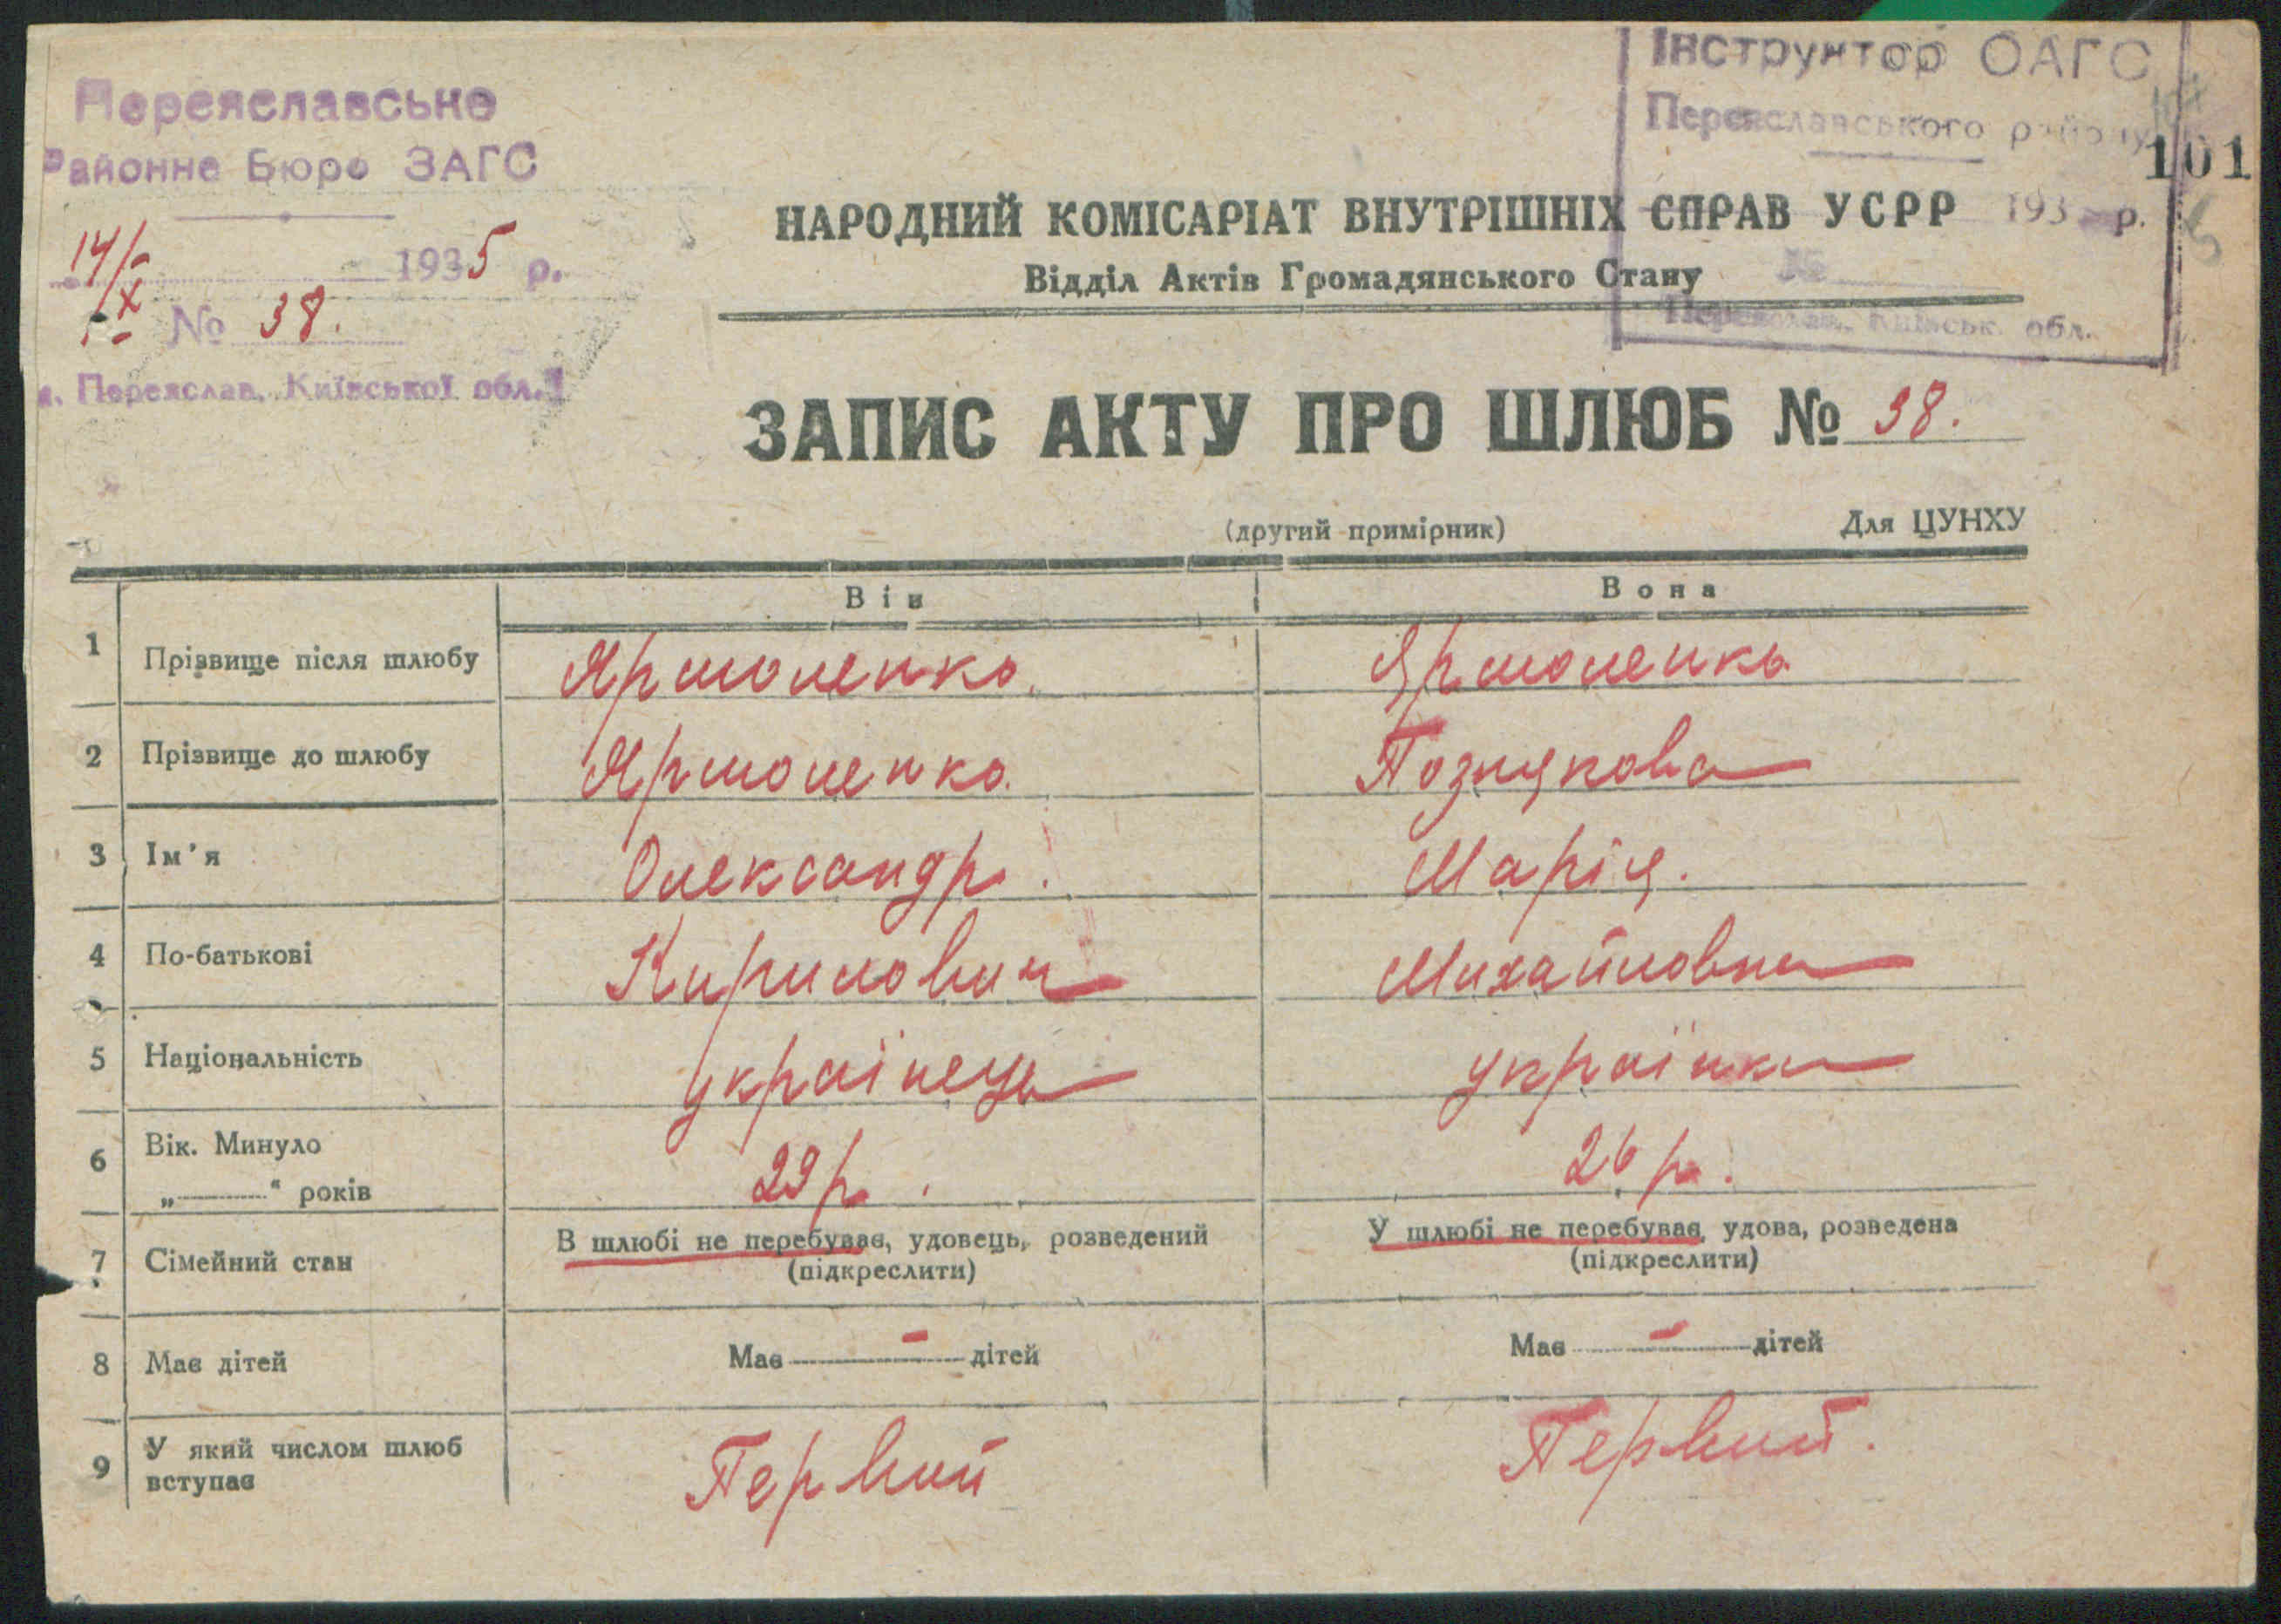 Переяславське
Районне Бюро ЗАГС
14/X 1935 р.
№ 38.
м. Переяслав, Київської обл.
Інструктор ОАГС
Переяславського району
193 р.
№
Переяслав, Київськ. обл.
101
НАРОДНИЙ КОМІСАРІАТ ВНУТРІШНІХ СПРАВ УСРР
Відділ Актів Громадянського Стану
ЗАПИС АКТУ ПРО ШЛЮБ № 38.
(другий примірник) Для ЦУНХУ
Він Вона
1 Прізвище після шлюбу Ярмоленко. Ярмоленко
2 Прізвище до шлюбу Ярмоленко. Познякова
3 Ім'я Олександр. Марія.
4 По-батькові Кирилович Михайловна
5 Національність українець українка
6 Вік. Минуло
„ “ років 29 р. 26 р.
7 Сімейний стан В шлюбі не перебуває, удовець, розведений У шлюбі не перебуває, удова, розведена
(підкреслити) (підкреслити)
8 Має дітей Має – дітей Має – дітей
9 У який числом шлюб
вступає Первий Первий.